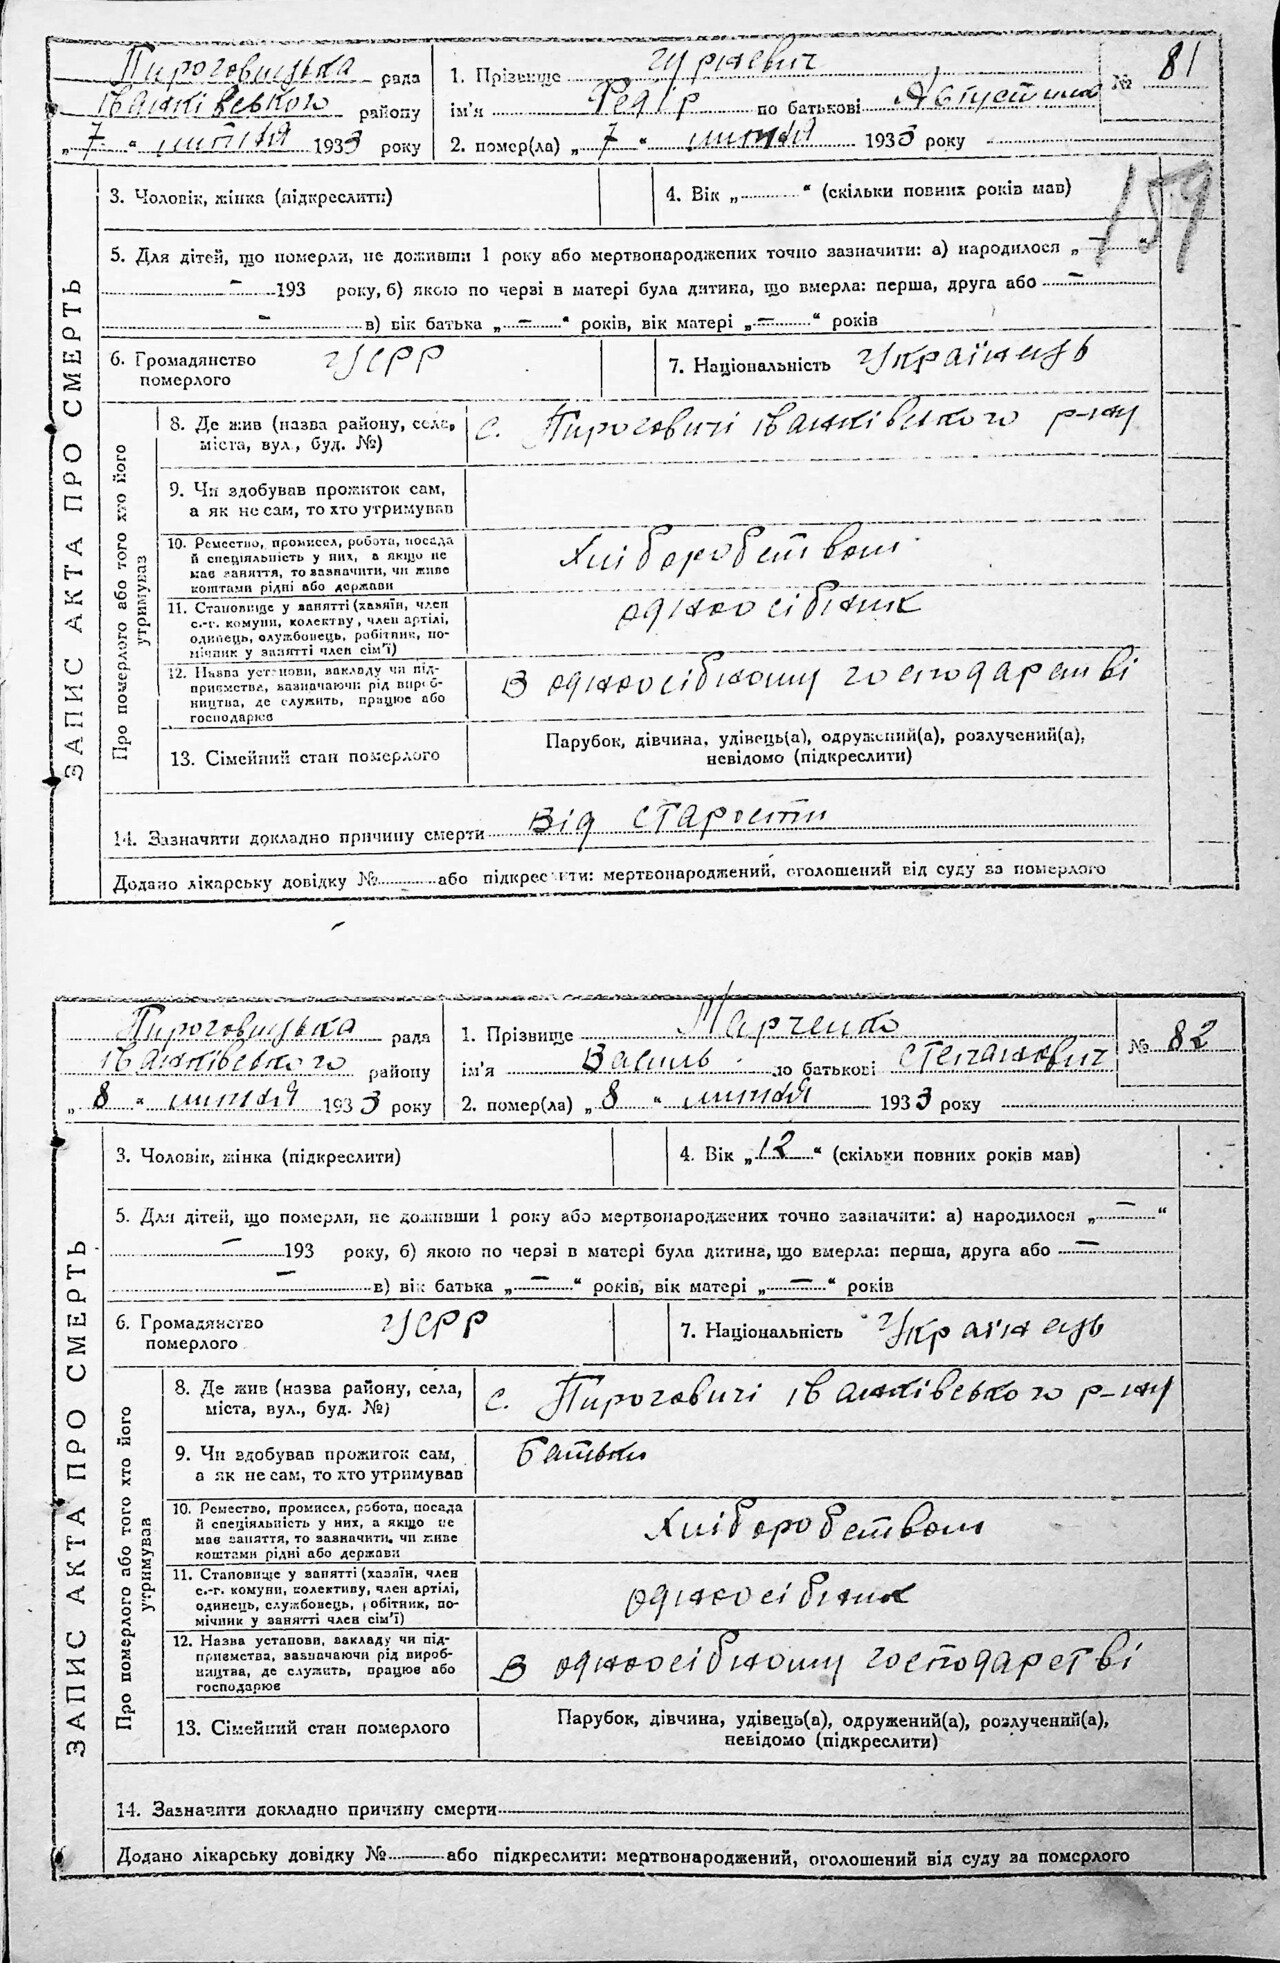 Пироговицька рада
Іванківського району
„ 7 “ липня 1933 року
1. Прізвище Гуркевич
ім'я Федір по батькові
2. помер(ла) „ 7 “ липня 1933 року
№ 81
159
ЗАПИС АКТА ПРО СМЕРТЬ
3. Чоловік, жінка (підкреслити)
4. Вік „ “ (скільки повних років мав)
5. Для дітей, що померли, не доживши 1 року або мертвонароджених точно зазначити: а) народилося „ — “
— 193 року, б) якою по черзі в матері була дитина, що вмерла: перша, друга або —
— в) вік батька „ — “ років, вік матері „ — “ років
6. Громадянство
померлого
УСРР
7. Національність Українець
Про померлого або того хто його
утримував
8. Де жив (назва району, села,
міста, вул., буд. №)
с. Пироговичі Іванківського р-ну
9. Чи здобував прожиток сам,
а як не сам, то хто утримував
10. Ремество, промисел, робота, посада
й спеціяльність у них, а якщо не
має заняття, то зазначити, чи живе
коштами рідні або держави
Хліборобством
11. Становище у занятті (хазяїн, член
с.-г. комуни, колективу, член артілі,
одинець, службовець, робітник, по-
мічник у занятті член сім'ї)
одноосібник
12. Назва установи, закладу чи під-
приємства, зазначаючи рід вироб-
ництва, де служить, працює або
господарює
В одноосібному господарстві
13. Сімейний стан померлого
Парубок, дівчина, удівець(а), одружений(а), розлучений(а),
невідомо (підкреслити)
14. Зазначити докладно причину смерти Від старости
Додано лікарську довідку № або підкреслити: мертвонароджений, оголошений від суду за померлого
Пироговицька рада
Іванківського району
„ 8 “ липня 1933 року
1. Прізвище Марченко
ім'я Василь по батькові Степанович
2. помер(ла) „ 8 “ липня 1933 року
№ 82
ЗАПИС АКТА ПРО СМЕРТЬ
3. Чоловік, жінка (підкреслити)
4. Вік „ 12 “ (скільки повних років мав)
5. Для дітей, що померли, не доживши 1 року або мертвонароджених точно зазначити: а) народилося „ — “
— 193 року, б) якою по черзі в матері була дитина, що вмерла: перша, друга або —
— в) вік батька „ — “ років, вік матері „ — “ років
6. Громадянство
померлого
УСРР
7. Національність Українець
Про померлого або того хто його
утримував
8. Де жив (назва району, села,
міста, вул., буд. №)
с. Пироговичі Іванківського р-ну
9. Чи здобував прожиток сам,
а як не сам, то хто утримував
батьки
10. Ремество, промисел, робота, посада
й спеціяльність у них, а якщо не
має заняття, то зазначити, чи живе
коштами рідні або держави
Хліборобством
11. Становище у занятті (хазяїн, член
с.-г. комуни, колективу, член артілі,
одинець, службовець, робітник, по-
мічник у занятті член сім'ї)
одноосібник
12. Назва установи, закладу чи під-
приємства, зазначаючи рід вироб-
ництва, де служить, працює або
господарює
В одноосібному господарстві
13. Сімейний стан померлого
Парубок, дівчина, удівець(а), одружений(а), розлучений(а),
невідомо (підкреслити)
14. Зазначити докладно причину смерти
Додано лікарську довідку № або підкреслити: мертвонароджений, оголошений від суду за померлого